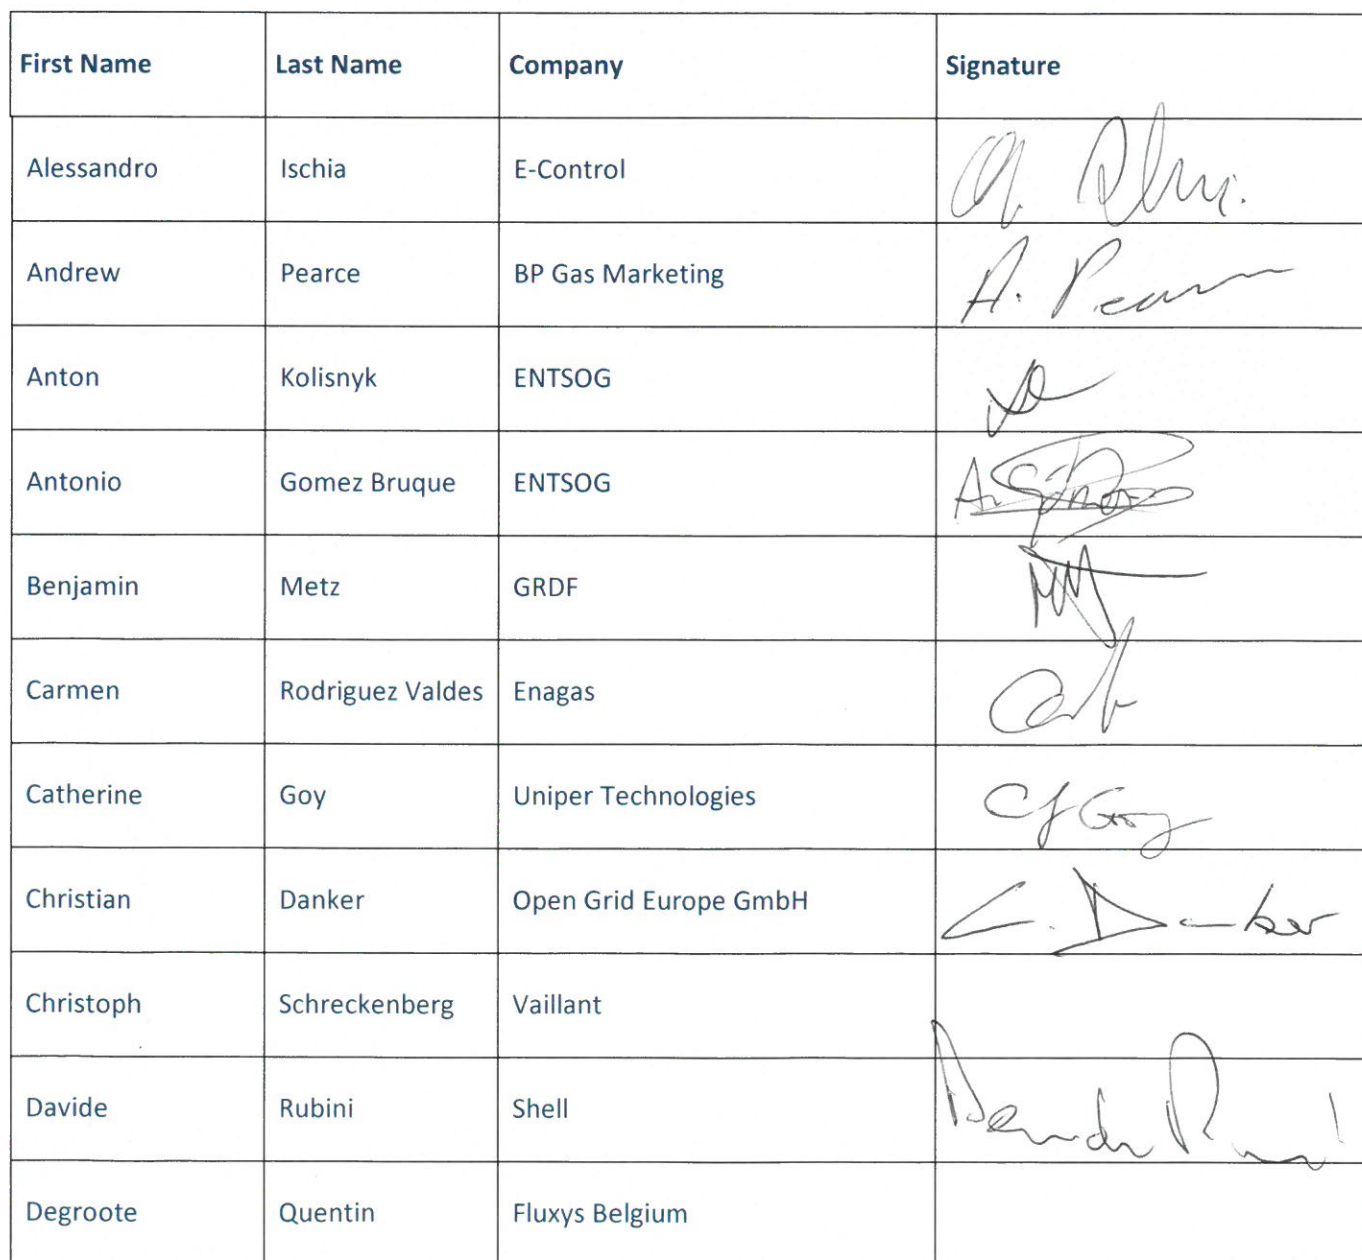 First Name Last Name Company Signature
Alessandro Ischia E-Control
Andrew Pearce BP Gas Marketing A. Pearce
Anton Kolisnyk ENTSOG
Antonio Gomez Bruque ENTSOG
Benjamin Metz GRDF
Carmen Rodriguez Valdes Enagas
Catherine Goy Uniper Technologies CJ Goy
Christian Danker Open Grid Europe GmbH C. Danker
Christoph Schreckenberg Vaillant
Davide Rubini Shell
Degroote Quentin Fluxys Belgium